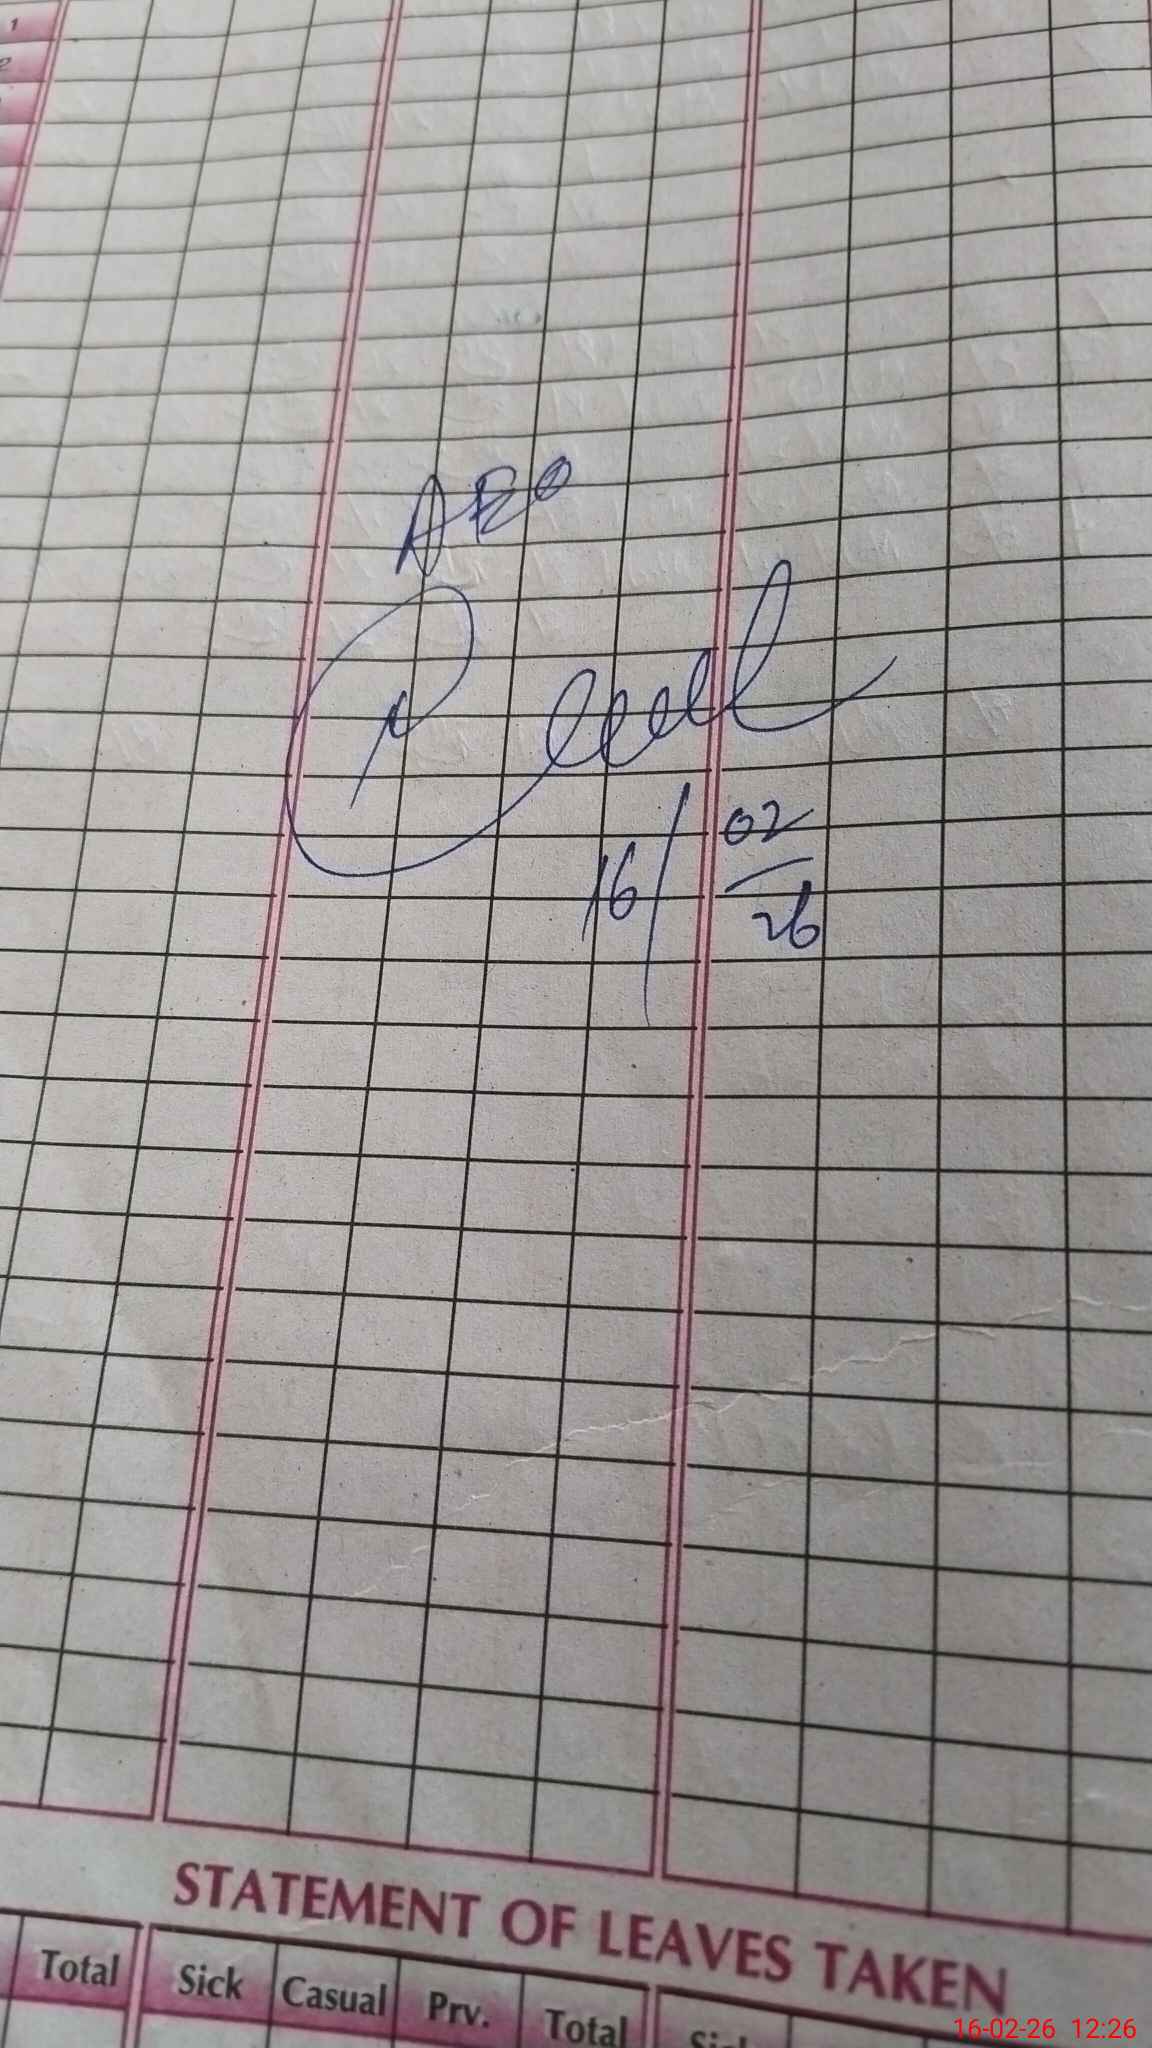 1
2
AEO
16/02/26
STATEMENT OF LEAVES TAKEN
Total Sick Casual Prv. Total
16-02-26 12:26